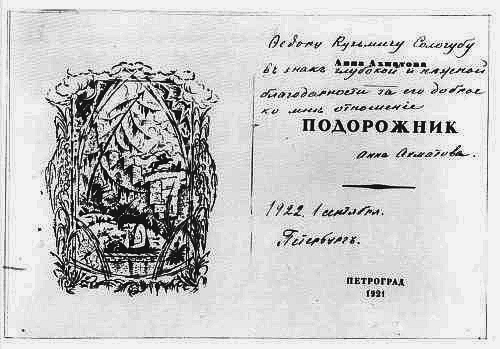 Ѳедору Кузьмичу Сологубу
Анна Ахматова
въ знакъ глубокой и
благодарности за его доброе
ко мнѣ отношеніе
ПОДОРОЖНИК
Анна Ахматова.
1922. 1 сентября.
Петербургъ.
ПЕТРОГРАД
1921